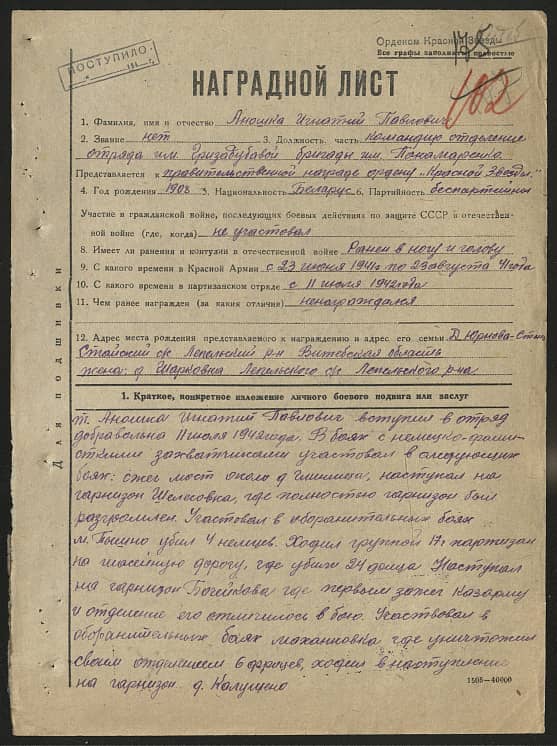 Орденом Красной Звезды
Все графы заполнять полностью
ПОСТУПИЛО
194 г.
102
НАГРАДНОЙ ЛИСТ
1. Фамилия, имя и отчество Аношка Игнатий Павлович
2. Звание нет 3. Должность, часть командир отделение
отряда им. Гризадубавой бригады им. Понамаренко.
Представляется к правительственной награде ордену „Красной Звезды"
4. Год рождения 1908 5. Национальность Беларус 6. Партийность беспартийны
Участие в гражданской войне, последующих боевых действиях по защите СССР и отечествен-
ной войне (где, когда) не участовал
8. Имеет ли ранения и контузии в отечественной войне Ранен в ногу и голову
9. С какого времени в Красной Армии с 23 июня 1941г по 23 августа 41 года
10. С какого времени в партизанском отряде с 11 июля 1942 года
11. Чем ранее награжден (за какия отличия) ненаграждался
12. Адрес места рождения представляемого к награждению и адрес его семьи Д Юрнова-Стена
Стайский с/с Лепельский р-н Витебская область
жена: д Шарковка Лепельского с/с Лепельского р-на
Для подшивки
1. Краткое, конкретное изложение личного боевого подвига или заслуг
т. Аношка Игнатий Павлович вступил в отряд
добравельна 11 июля 1942 года. В боях с немецко-фаши-
стскими захватчиками участовал в следующих
боях: сжег мост около д наступал на
гарнизон где полностью гарнизон был
разгромлен. Участовал в оборанительных боях
м. Пышно убил 4 немцев. Ходил группой 17, партизан
на шасейную дорогу, где убили 24 Наступал
на гарнизон где первым зажег казарму
и отделение его отличилось в бою. Участвовал в
оборанительных боях где уничтожил
своим отделением 6 фрицев, ходил в наступление
на гарнизон д.
1505—40000